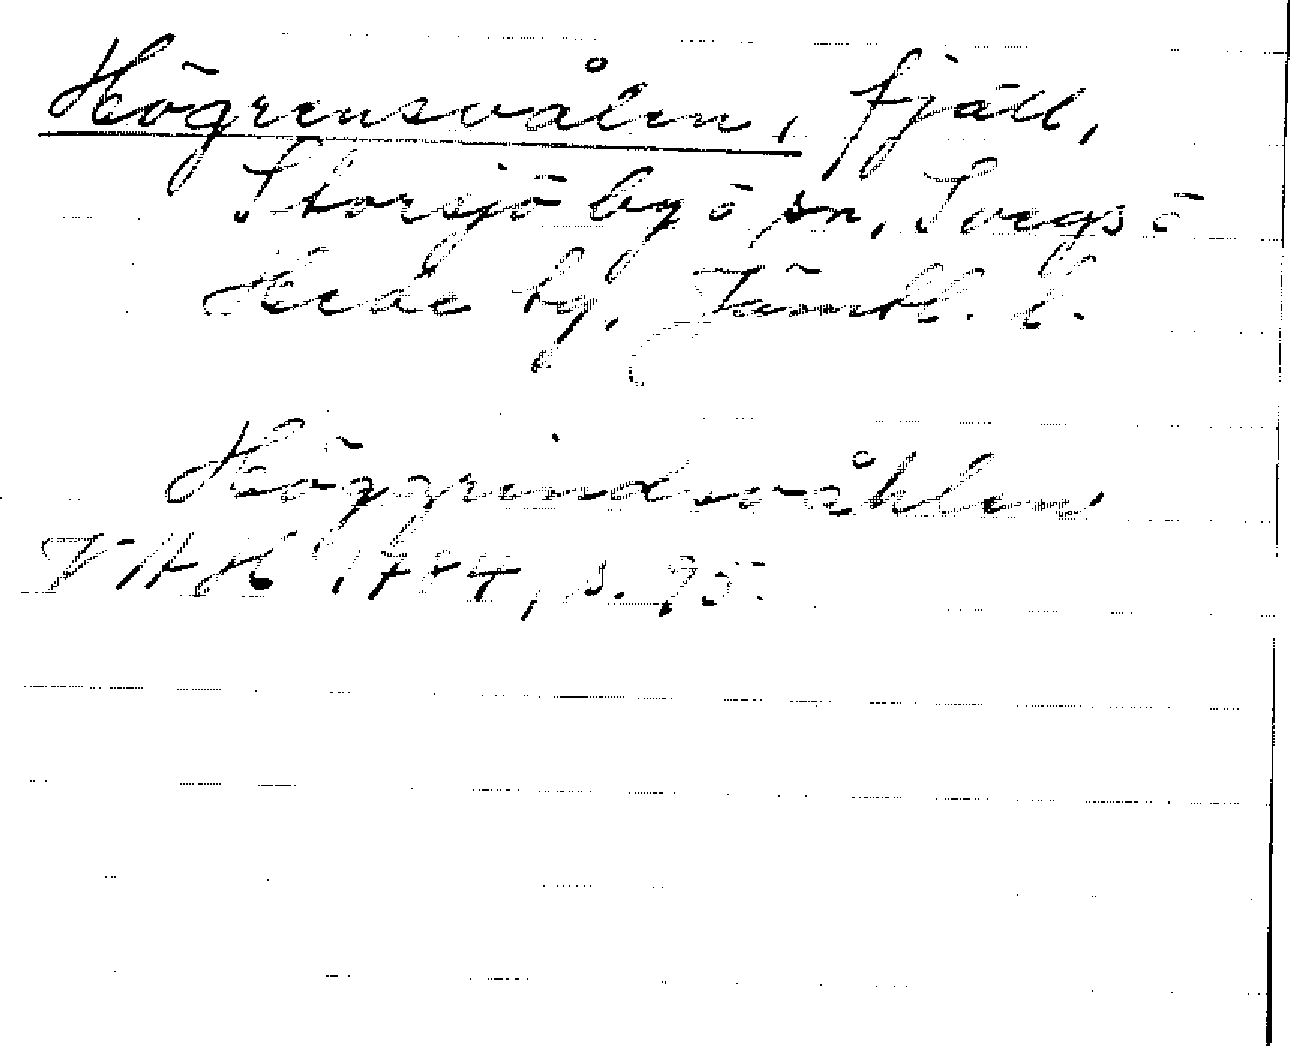 Högrensvålen, fjäll,
Storsjö by o sn, Svegs o
Hede tg, Jämtl. l.
Höggrindwåhlen,
VHH s. 75.